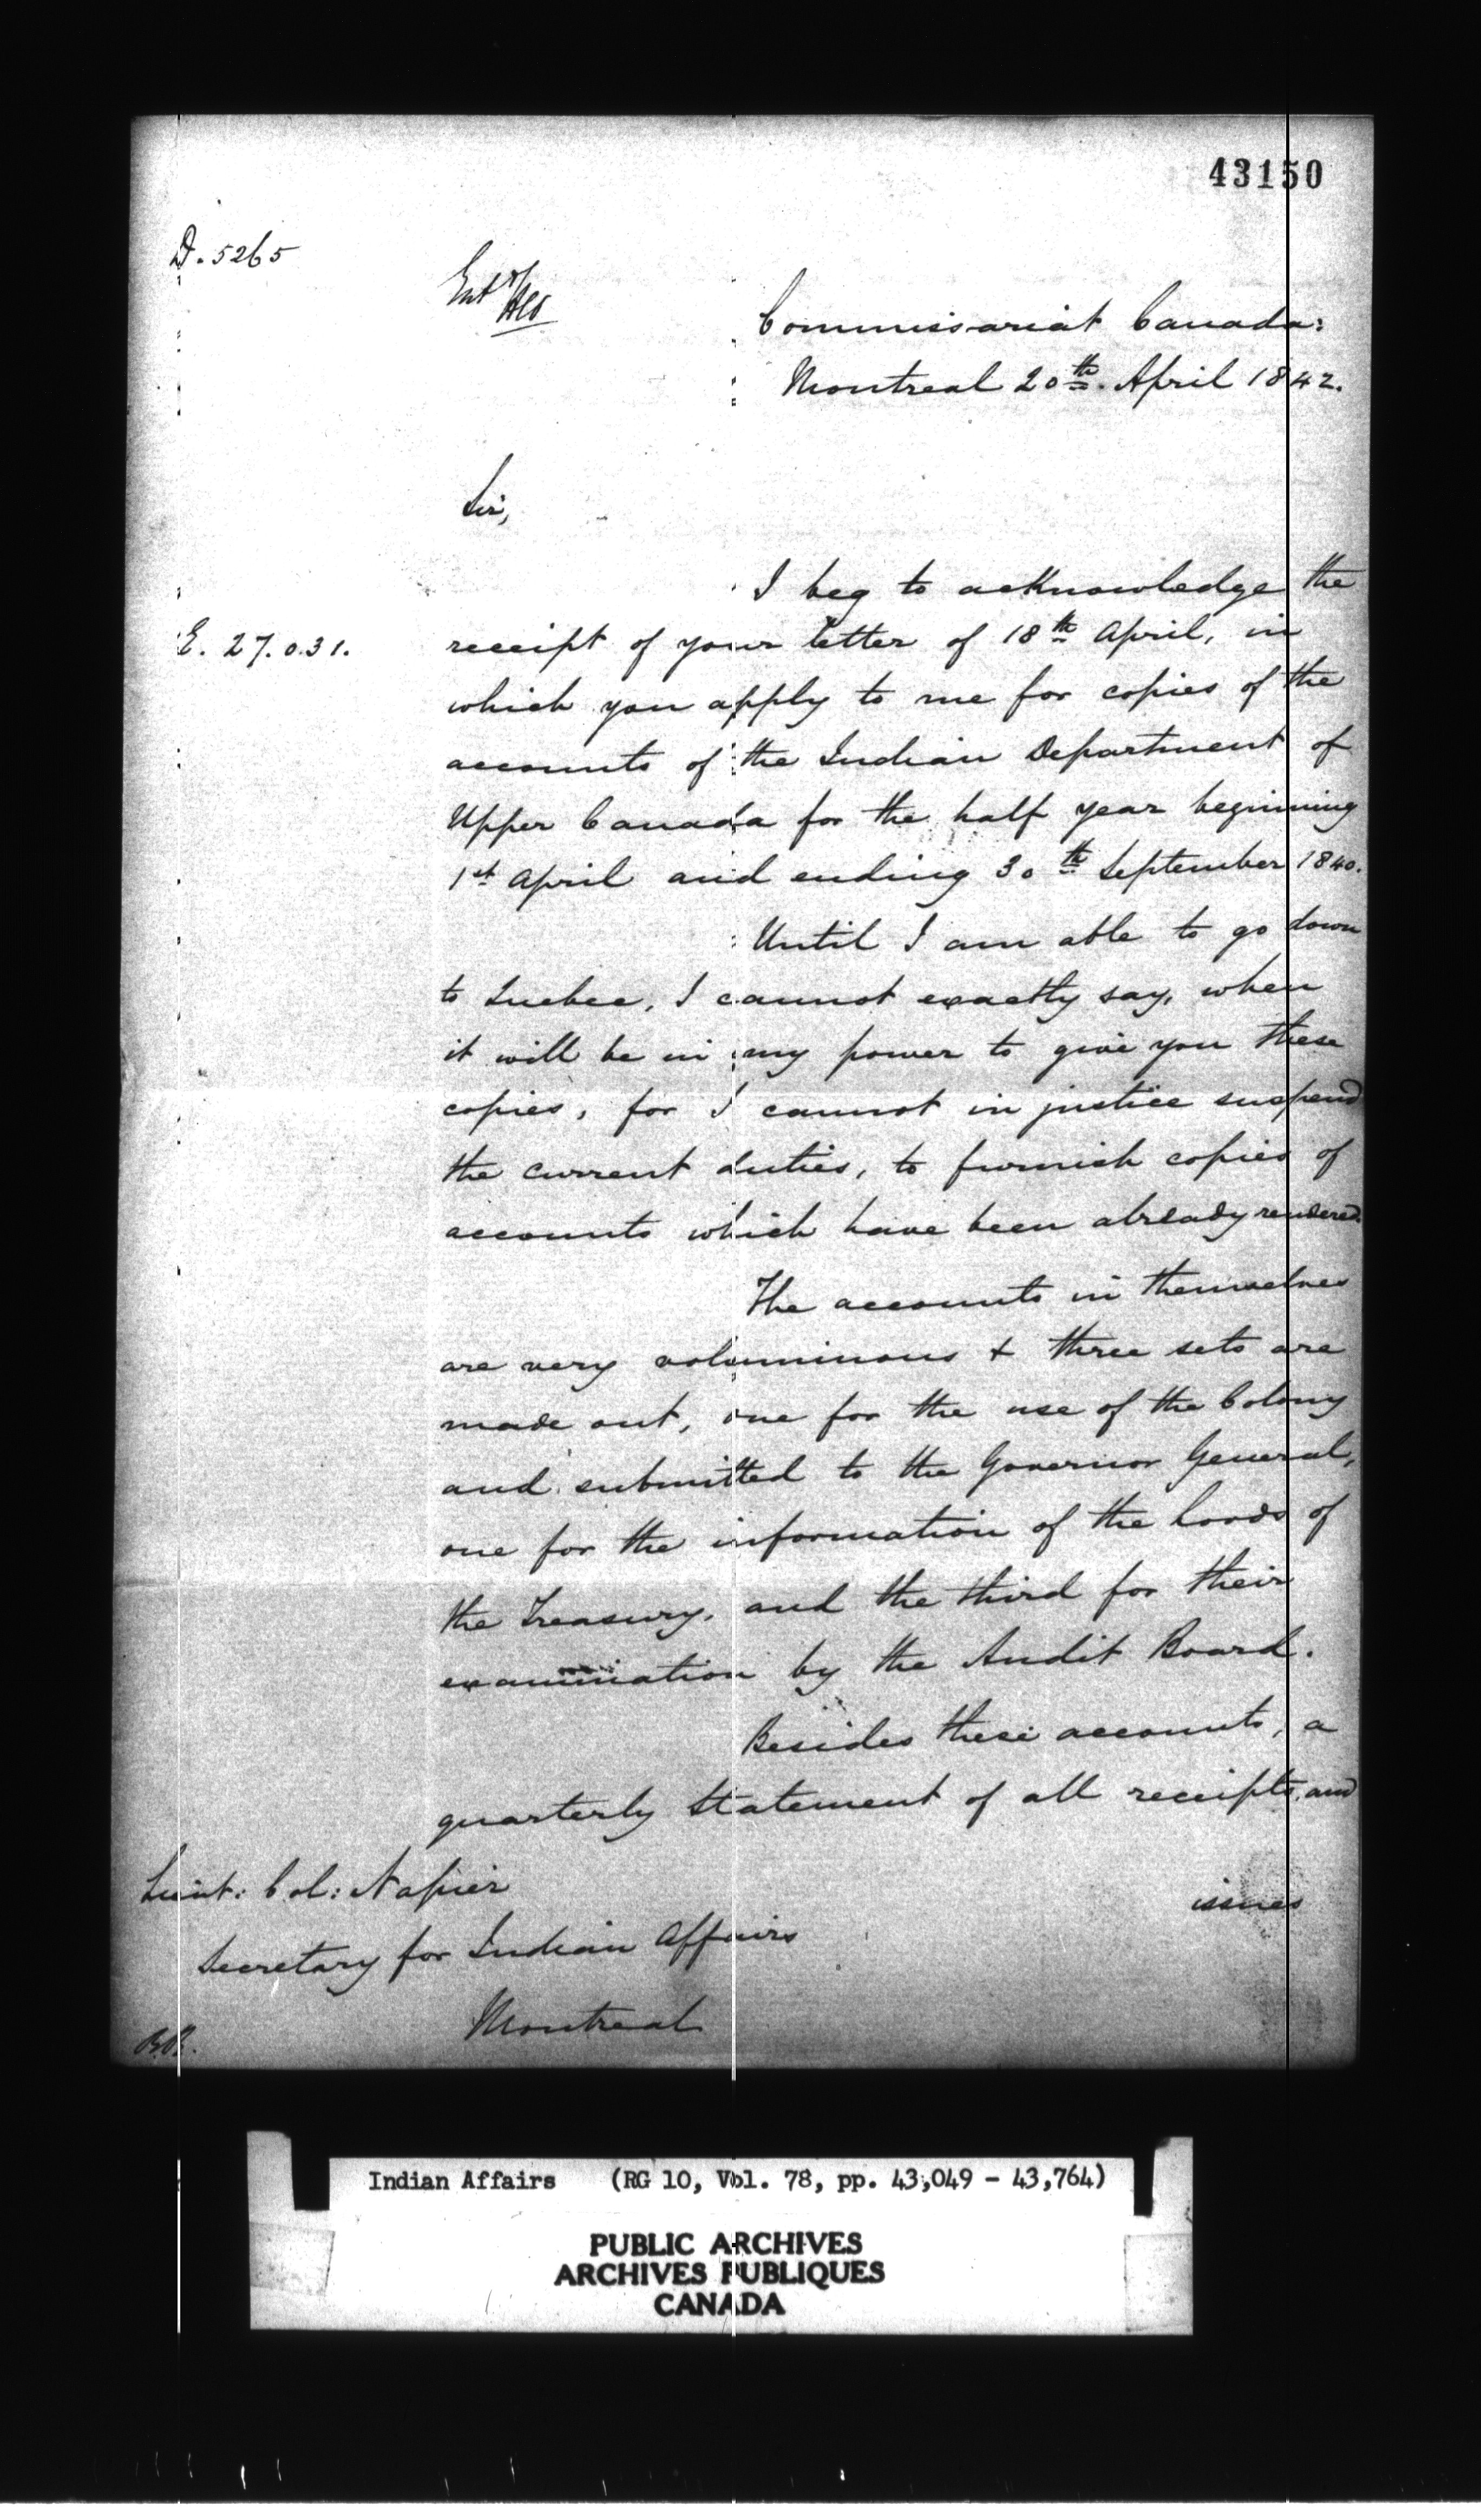 43150
D. 5265
Entd
Commissariat Canada:
Montreal 20th. April 1842.
Sir,
I beg to acknowledge the
E. 27.0.31.
receipt of your letter of 18th April, in
which you apply to me for copies of the
accounts of the Indian Department of
Upper Canada for the half year beginning
1st April and ending 30th September 1840.
Until I am able to go down
to Quebec, I cannot exactly say, when
it will be in my power to give you these
copies, for I cannot in justice suspend
the current duties, to furnish copies of
accounts which have been already rendered.
The accounts in themselves
are very voluminous & three sets are
made out, one for the use of the Colony
and submitted to the Governor General,
one for the information of the Lords of
the Treasury, and the third for their
examination by the Audit Board.
Besides these accounts, a
quarterly Statement of all receipts and
issues
Lieut: Col: Napier
Secretary for Indian Affairs
Montreal
Indian Affairs (RG 10, Vol. 78, pp. 43,049 - 43,764)
PUBLIC ARCHIVES
ARCHIVES PUBLIQUES
CANADA